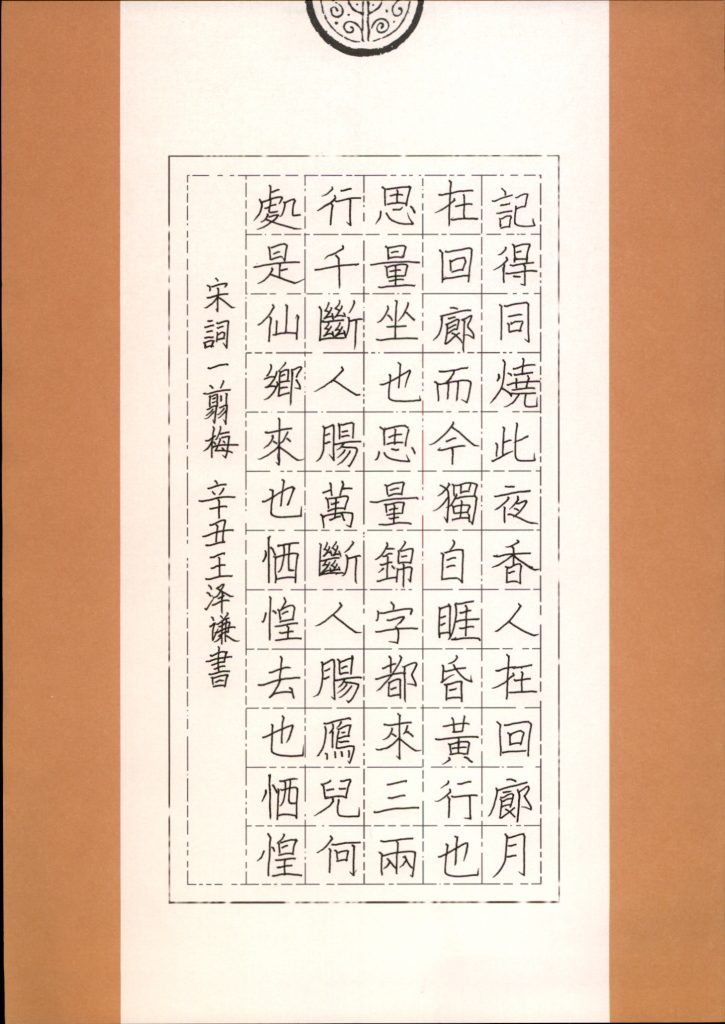 記得同燒此夜香人在回廊月
在回廊而今獨自睚昏黃行也
思量坐也思量錦字都來三兩
行千斷人腸萬斷人腸鴈兒何
處是仙鄉來也恓惶去也恓惶
宋詞一剪梅 辛丑王泽谦書